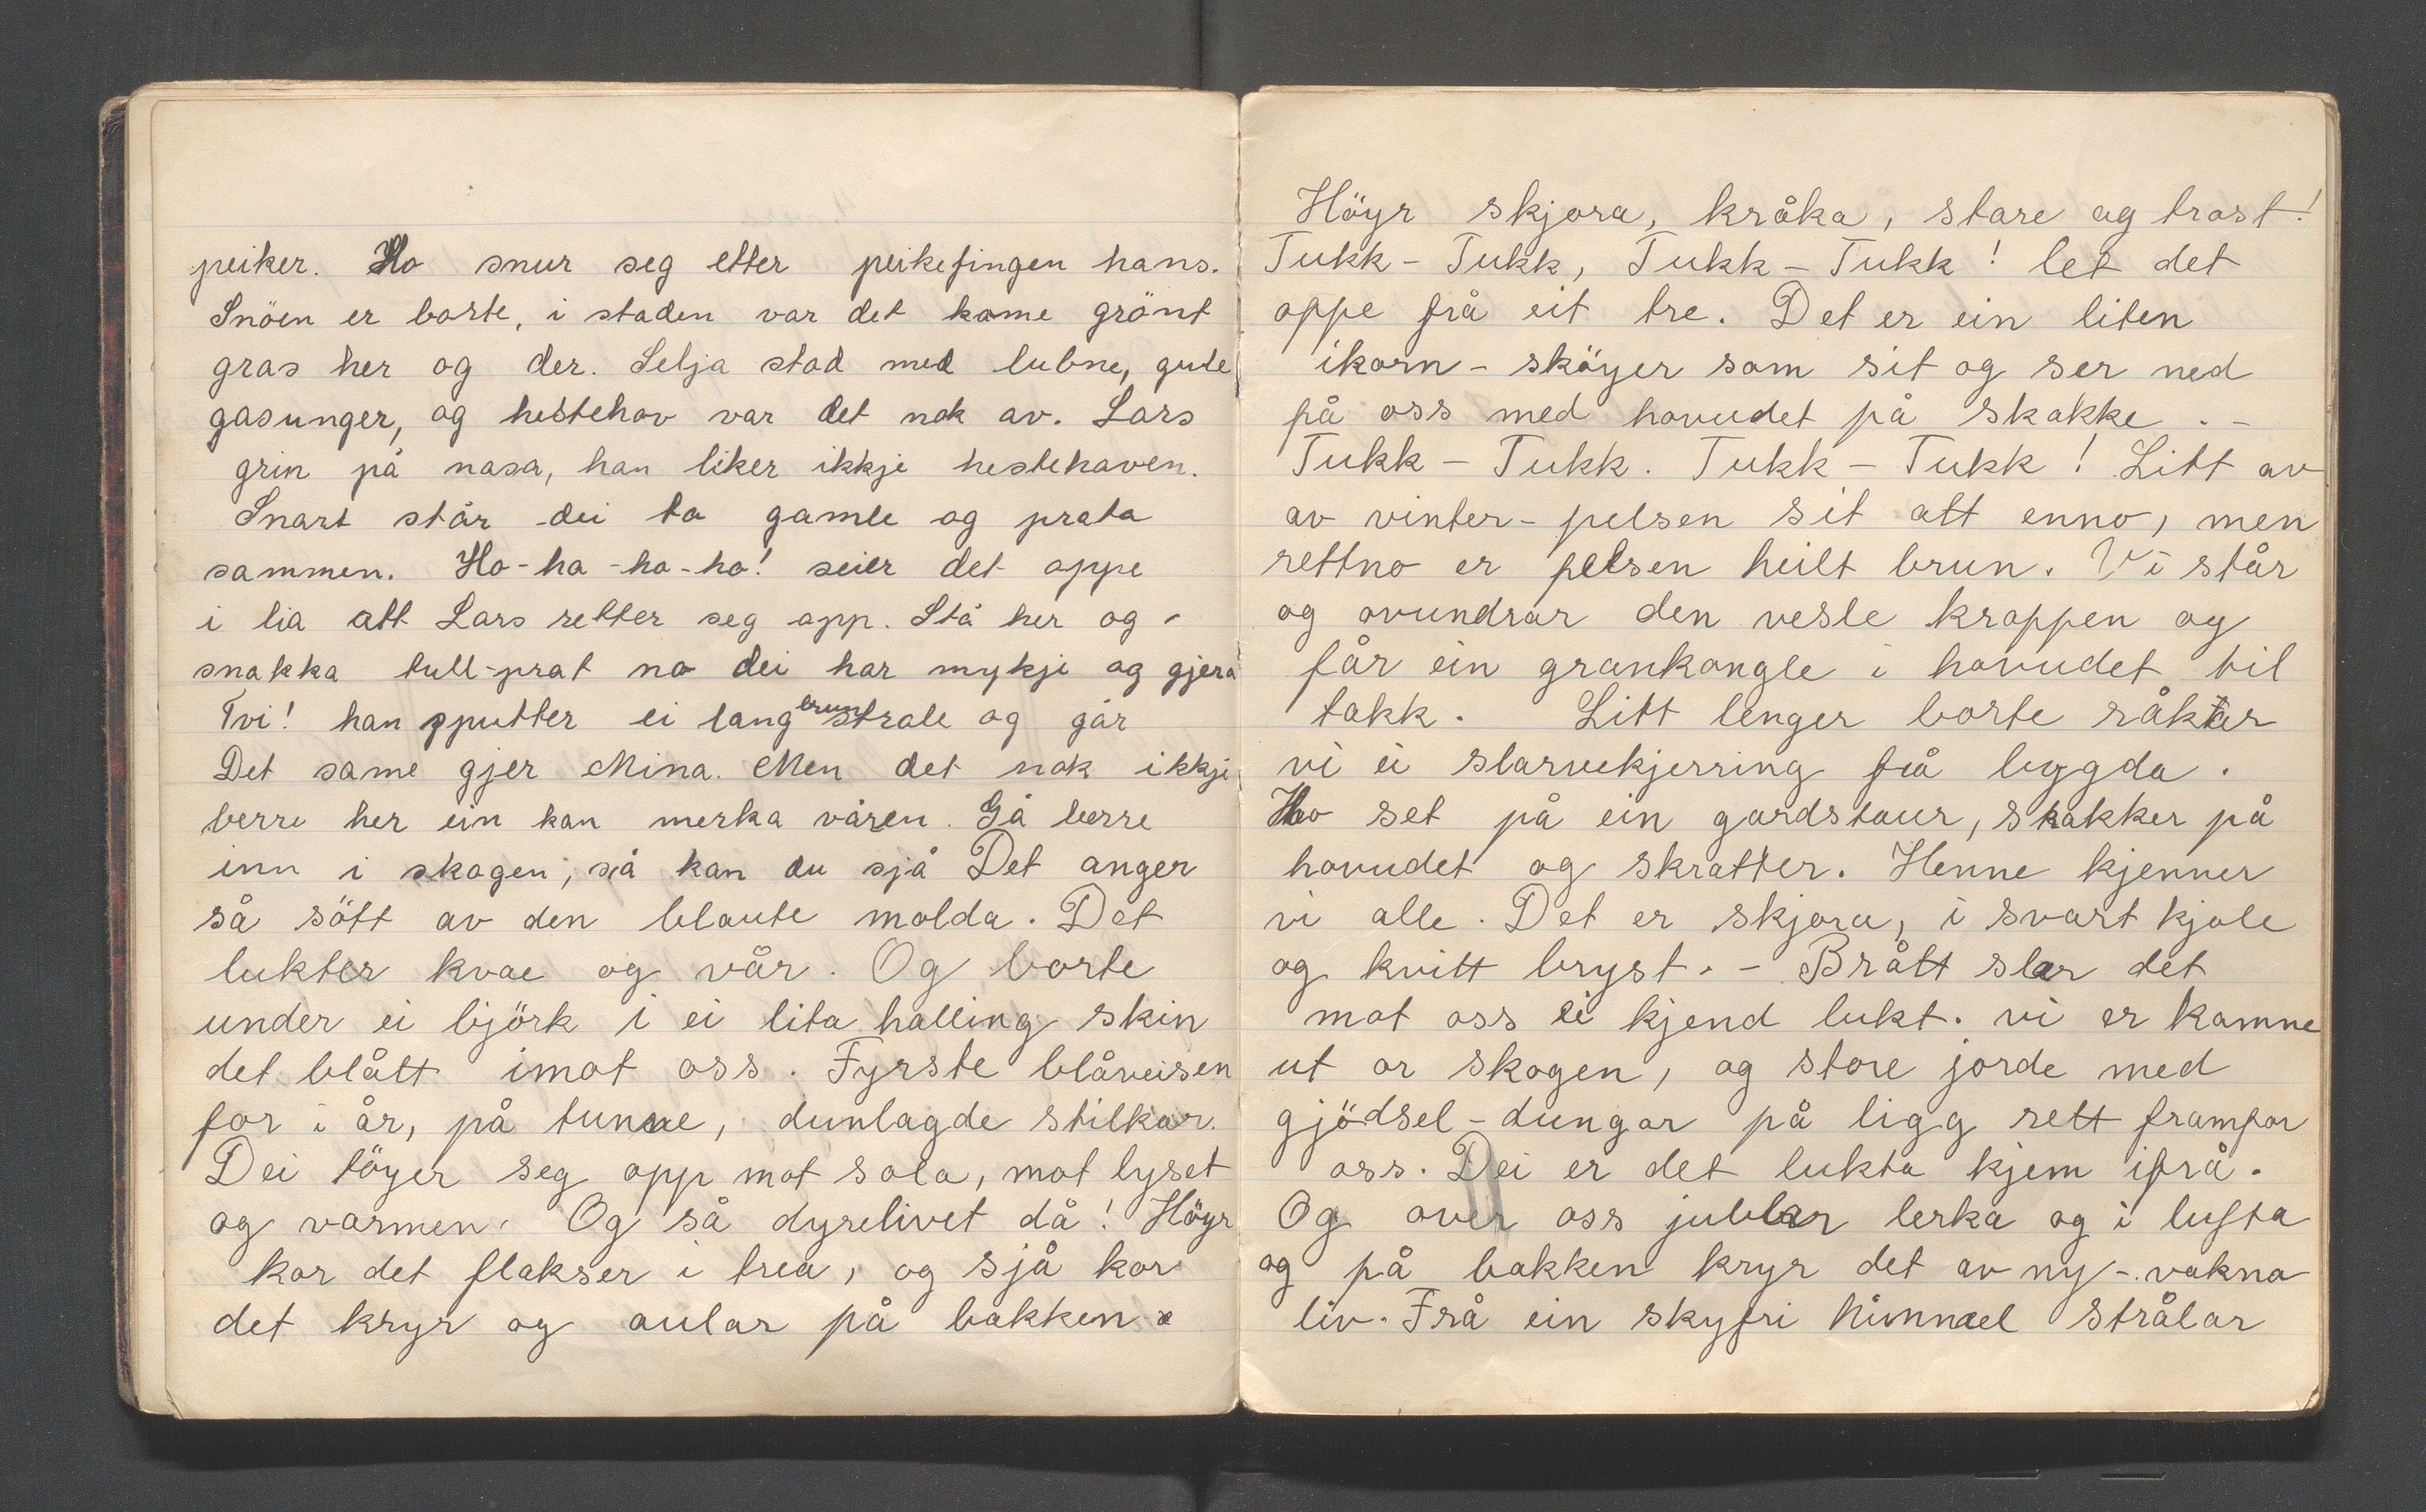 peiker. Ho snur seg etter peikefingen hans.
Snöen er borte, i staden var det kome grönt
gras her og der. Selja stod med lubne, gule
gasunger, og hestehov var det nok av. Lars
grin på nasa, han liker ikkje hestehoven.
Snart står dei to gamle og prata
sammen. Ho-ha-ho-ho! seier det oppe
i lia att Lars retter seg opp. Stå her og -
snakka tull-prat no dei har mykje og gjera
Tvi! han sputter ei lang brun strale og går
Det same gjer Mina. Men det nok ikkje
berre her ein kan merka våren. Gå berre
inn i skogen, så kan du sjå Det anger
så sött av den blaute molda. Det
lukter kvae og vår. Og borte
under ei björk i ei lita halling skin
det blått imot oss. Fyrste blåveisen
for i år, på tunne, dunlagde stilkar.
Dei töyer seg opp mot sola, mot lyset
og varmen. Og så dyrelivet då! Höyr
kor det flakser i trea, og sjå kor
det kryr og aular på bakken.
Höyr skjora, kråka, stare og trost!
Tukk - Tukk, Tukk - Tukk! let det
oppe frå eit tre. Det er ein liten
ikorn - sköyer som sit og ser ned
på oss med hovudet på skakke. -
Tukk - Tukk. Tukk - Tukk! Litt av
av vinter-pelsen sit att enno, men
rettno er pelsen heilt brun. Vi står
og ovundrar den vesle kroppen og
får ein grankongle i hovudet til
takk. Litt lenger borte råkar
vi ei slarvekjerring frå bygda.
Ho set på ein gardstaur, skakker på
hovudet og skratter. Henne kjenner
vi alle. Det er skjora, i svart kjole
og kvitt bryst. - Brått slar det
mot oss ei kjend lukt. vi er komne
ut or skogen, og store jorde med
gjödsel-dungar på ligg rett framfor
oss. Dei er det lukta kjem ifrå.
Og over oss jublar lerka og i lufta
og på bakken kryr det av ny-vakna
liv. Frå ein skyfri himmel strålar